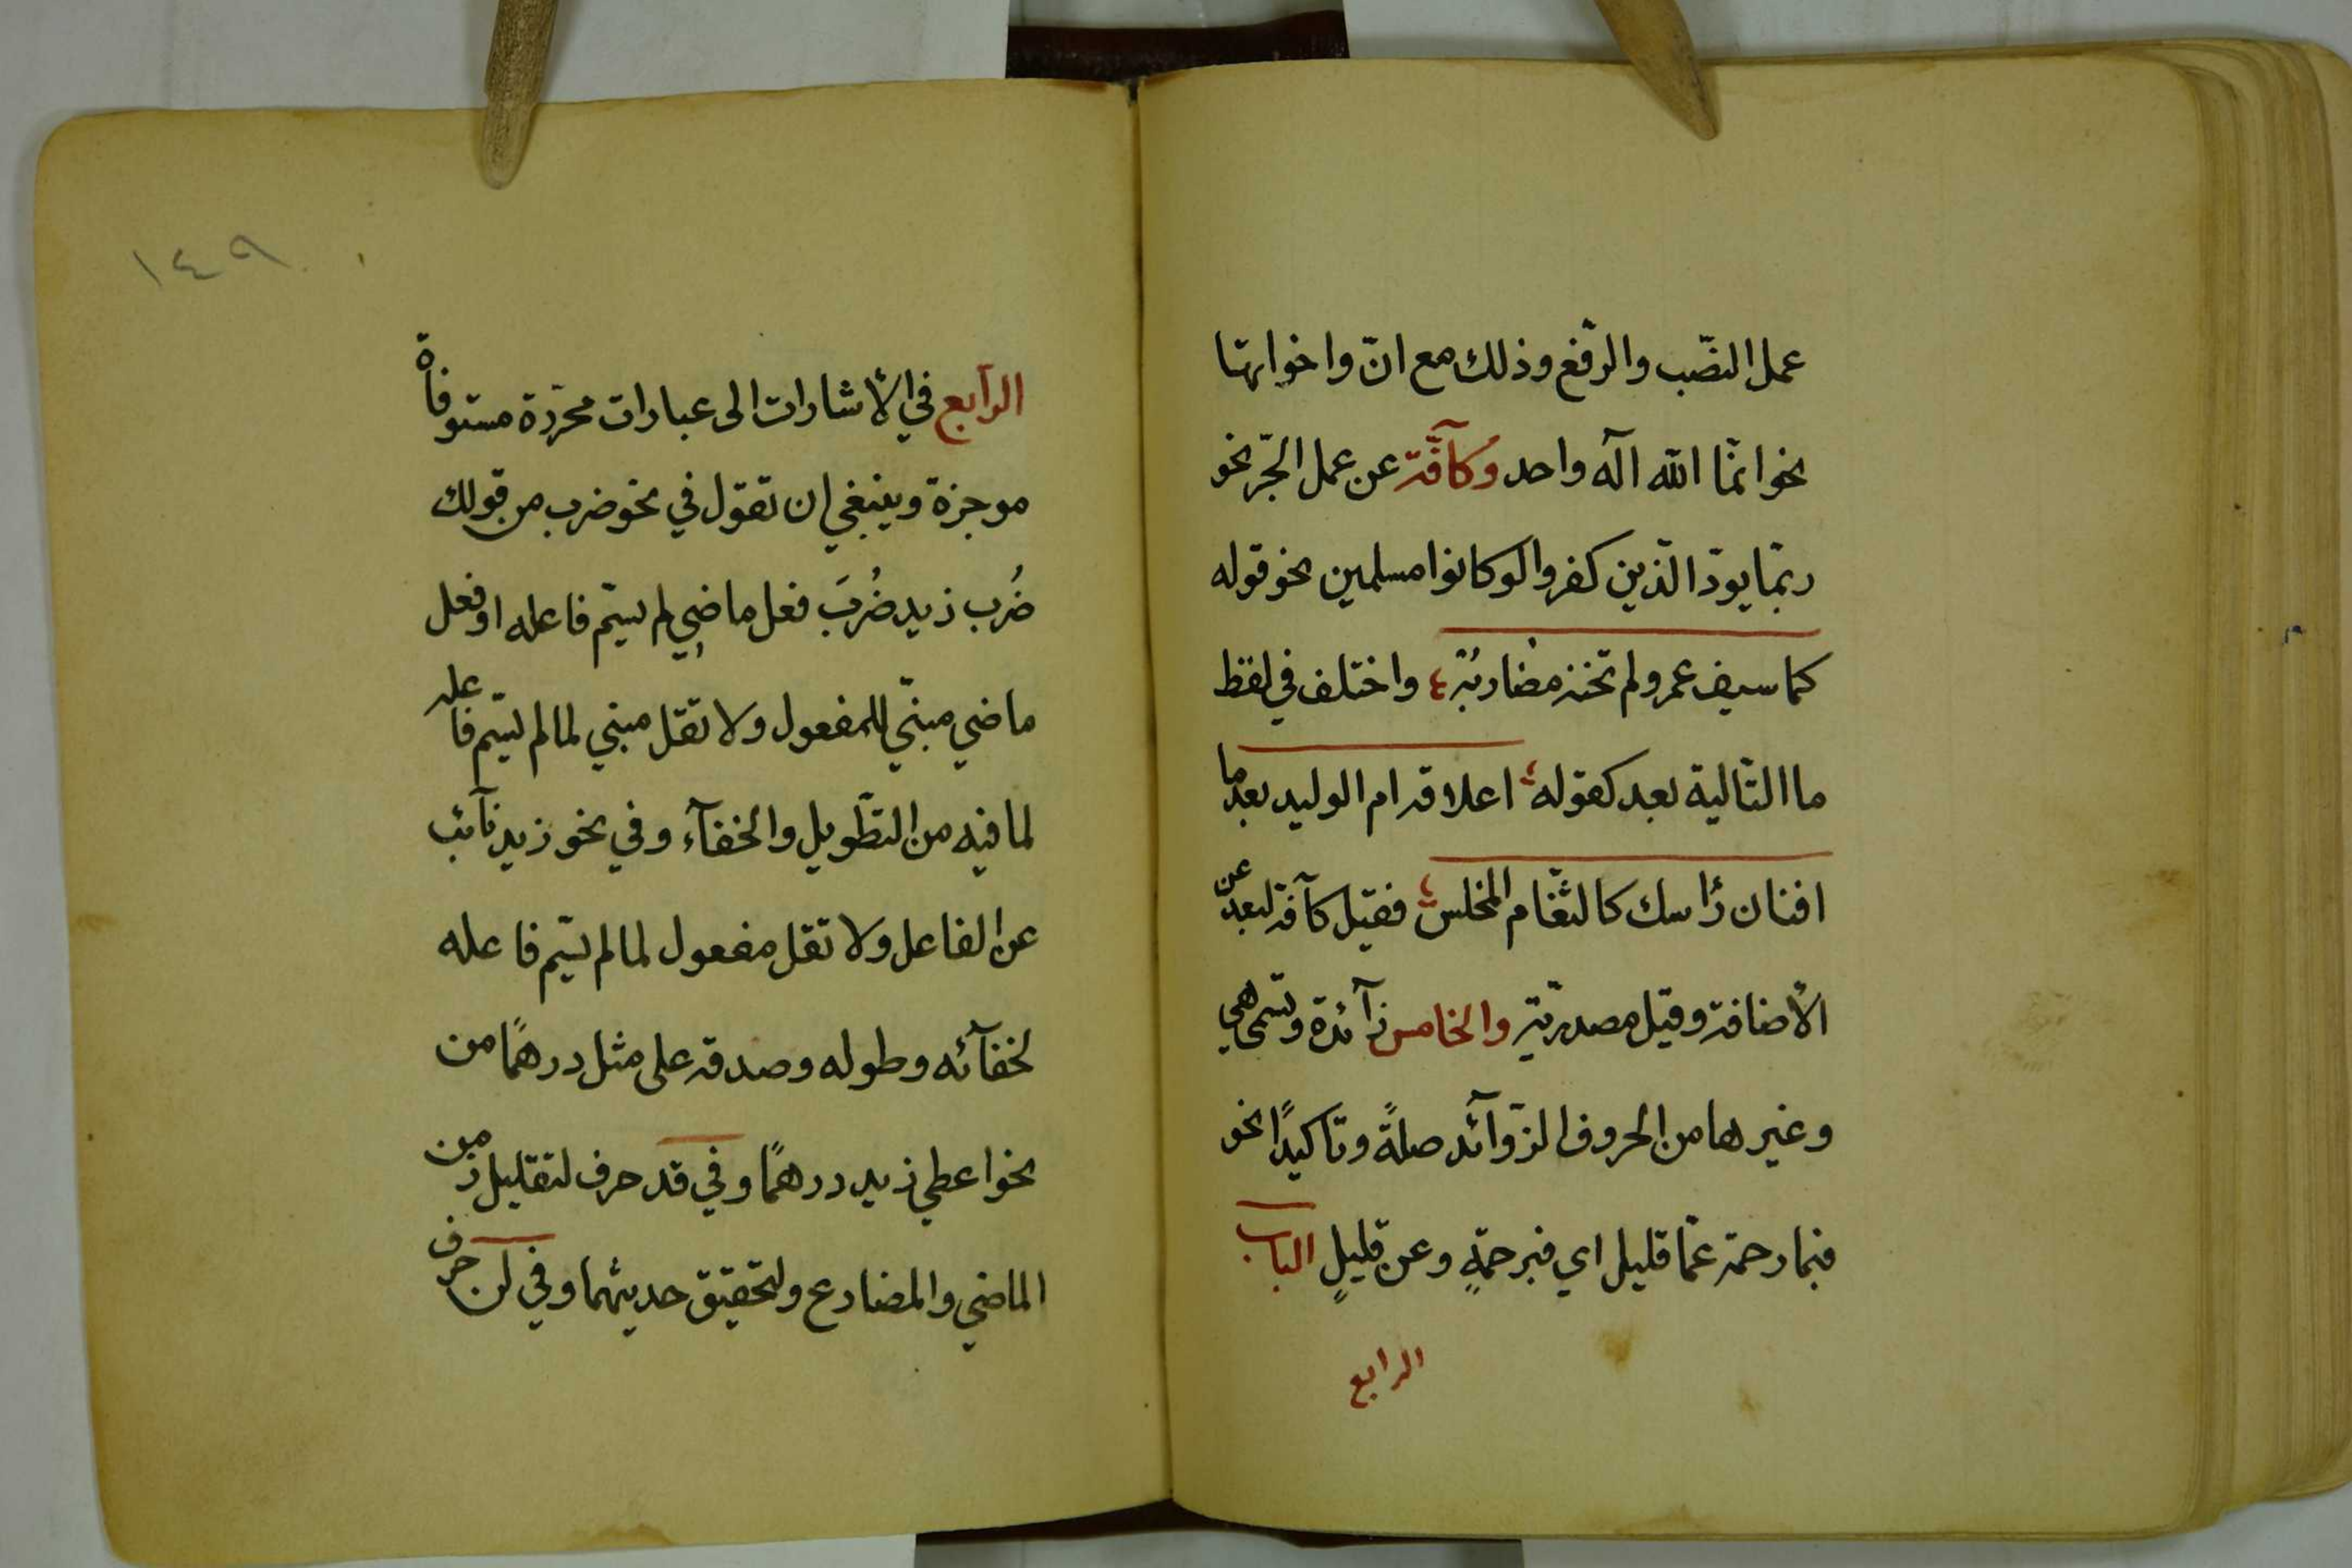 عمل النصّب والرّفع وذلك مع انّ واخواتها
نحو انمّا الله آله واحد وكآفّة عن عمل الجّر نحو
ربّما يودّ الذّين كفروا لوكانوا مسلمين نحو قوله
كما سيف عمرو لم تخنه مضاربُه واختلف في لفظ
ما التّالية بعد كقوله اعلاقه ام الوليد بعد ما
افنان رأسك كالثّغام المخلس فقيل كآفة لبعد عن
الأضافة وقيل مصدريّة والخامس زآئدة وتسمّى هي
وغيرها من الحروف الزّوآئد صلةً وتاكيدًا نحو
فبما رحمة عمّا قليل اي فبرحمةٍ وعن قليلٍ الباب
الرابع
١٤٩
الرّابع في الأشارات الى عبارات محرّرة مستوفاة
موجزة وينبغي ان تقول في نحو ضرب من قولك
ضُرب زيد ضُربَ فعل ماضٍي لم يسّم فاعله او فعل
ماضي مبنّي للمفعول ولا تقل مبني لما لم يسّم فاعله
لما فيه من التطّويل والخفآء وفي نحو زيد نآئب
عن الفاعل ولا تقل مفعول لما لم يسّم فاعله
لخفآئه وطوله وصدقه على مثل درهمًا من
نحو اعطي زيد درهمًا وفي قد حرف لتقليل زمن
الماضي والمضارع ولتحقيق حديثهما وفي لن حرف